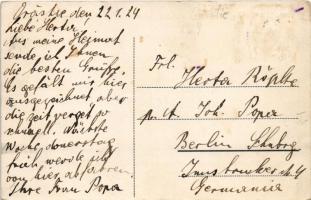 den 22.1.24
Liebe Herta
Aus meine Heimat
sende ich Ihnen
die besten Grüße.
Es gefält mir hier
ausgezeichnet aber
die zeit verget so
schnell. Nächste
Woche donnerstag
früh werde ich
von hier abfahren.
Ihre Frau Popa
Frl.
Herta
Joh. Popa
Berlin Schbrg
Germania